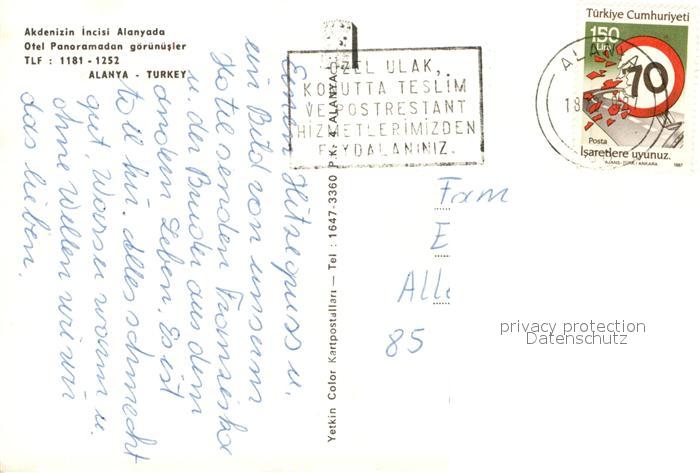 Akdenizin İncisi Alanyada
Otel Panoramadan görünüşler
TLF : 1181 - 1252
ALANYA - TURKEY
Einen Hitzegruss u.
ein Bild von unserm
Hotel senden Franziska
u. der Bruder aus dem
andern Leben. Es ist
toll hir. Alles schmeckt
gut, Wasser warm u.
ohne Wellen wie wir
das lieben.
Yetkin Color Kartpostalları — Tel : 1647-3360 P.K. 4 ALANYA
ÖZEL ULAK,
KONUTTA TESLİM
VE POSTRESTANT
HİZMETLERİMİZDEN
FAYDALANINIZ.
ALANYA
Türkiye Cumhuriyeti
150
Lira
70
Posta
İşaretlere uyunuz.
AJANS-TÜRK / ANKARA 1987
Fam
E
Alle
85
privacy protection
Datenschutz